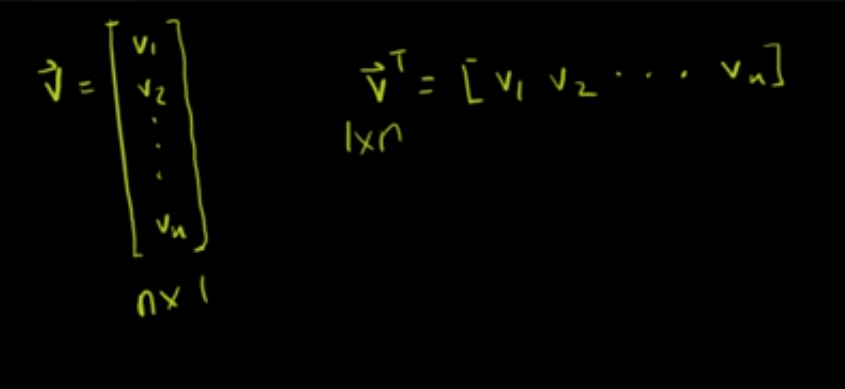 v⃗ = [v₁ v₂ ⋮ vₙ]
n×1
v⃗ᵀ = [v₁ v₂ ⋯ vₙ]
1×n